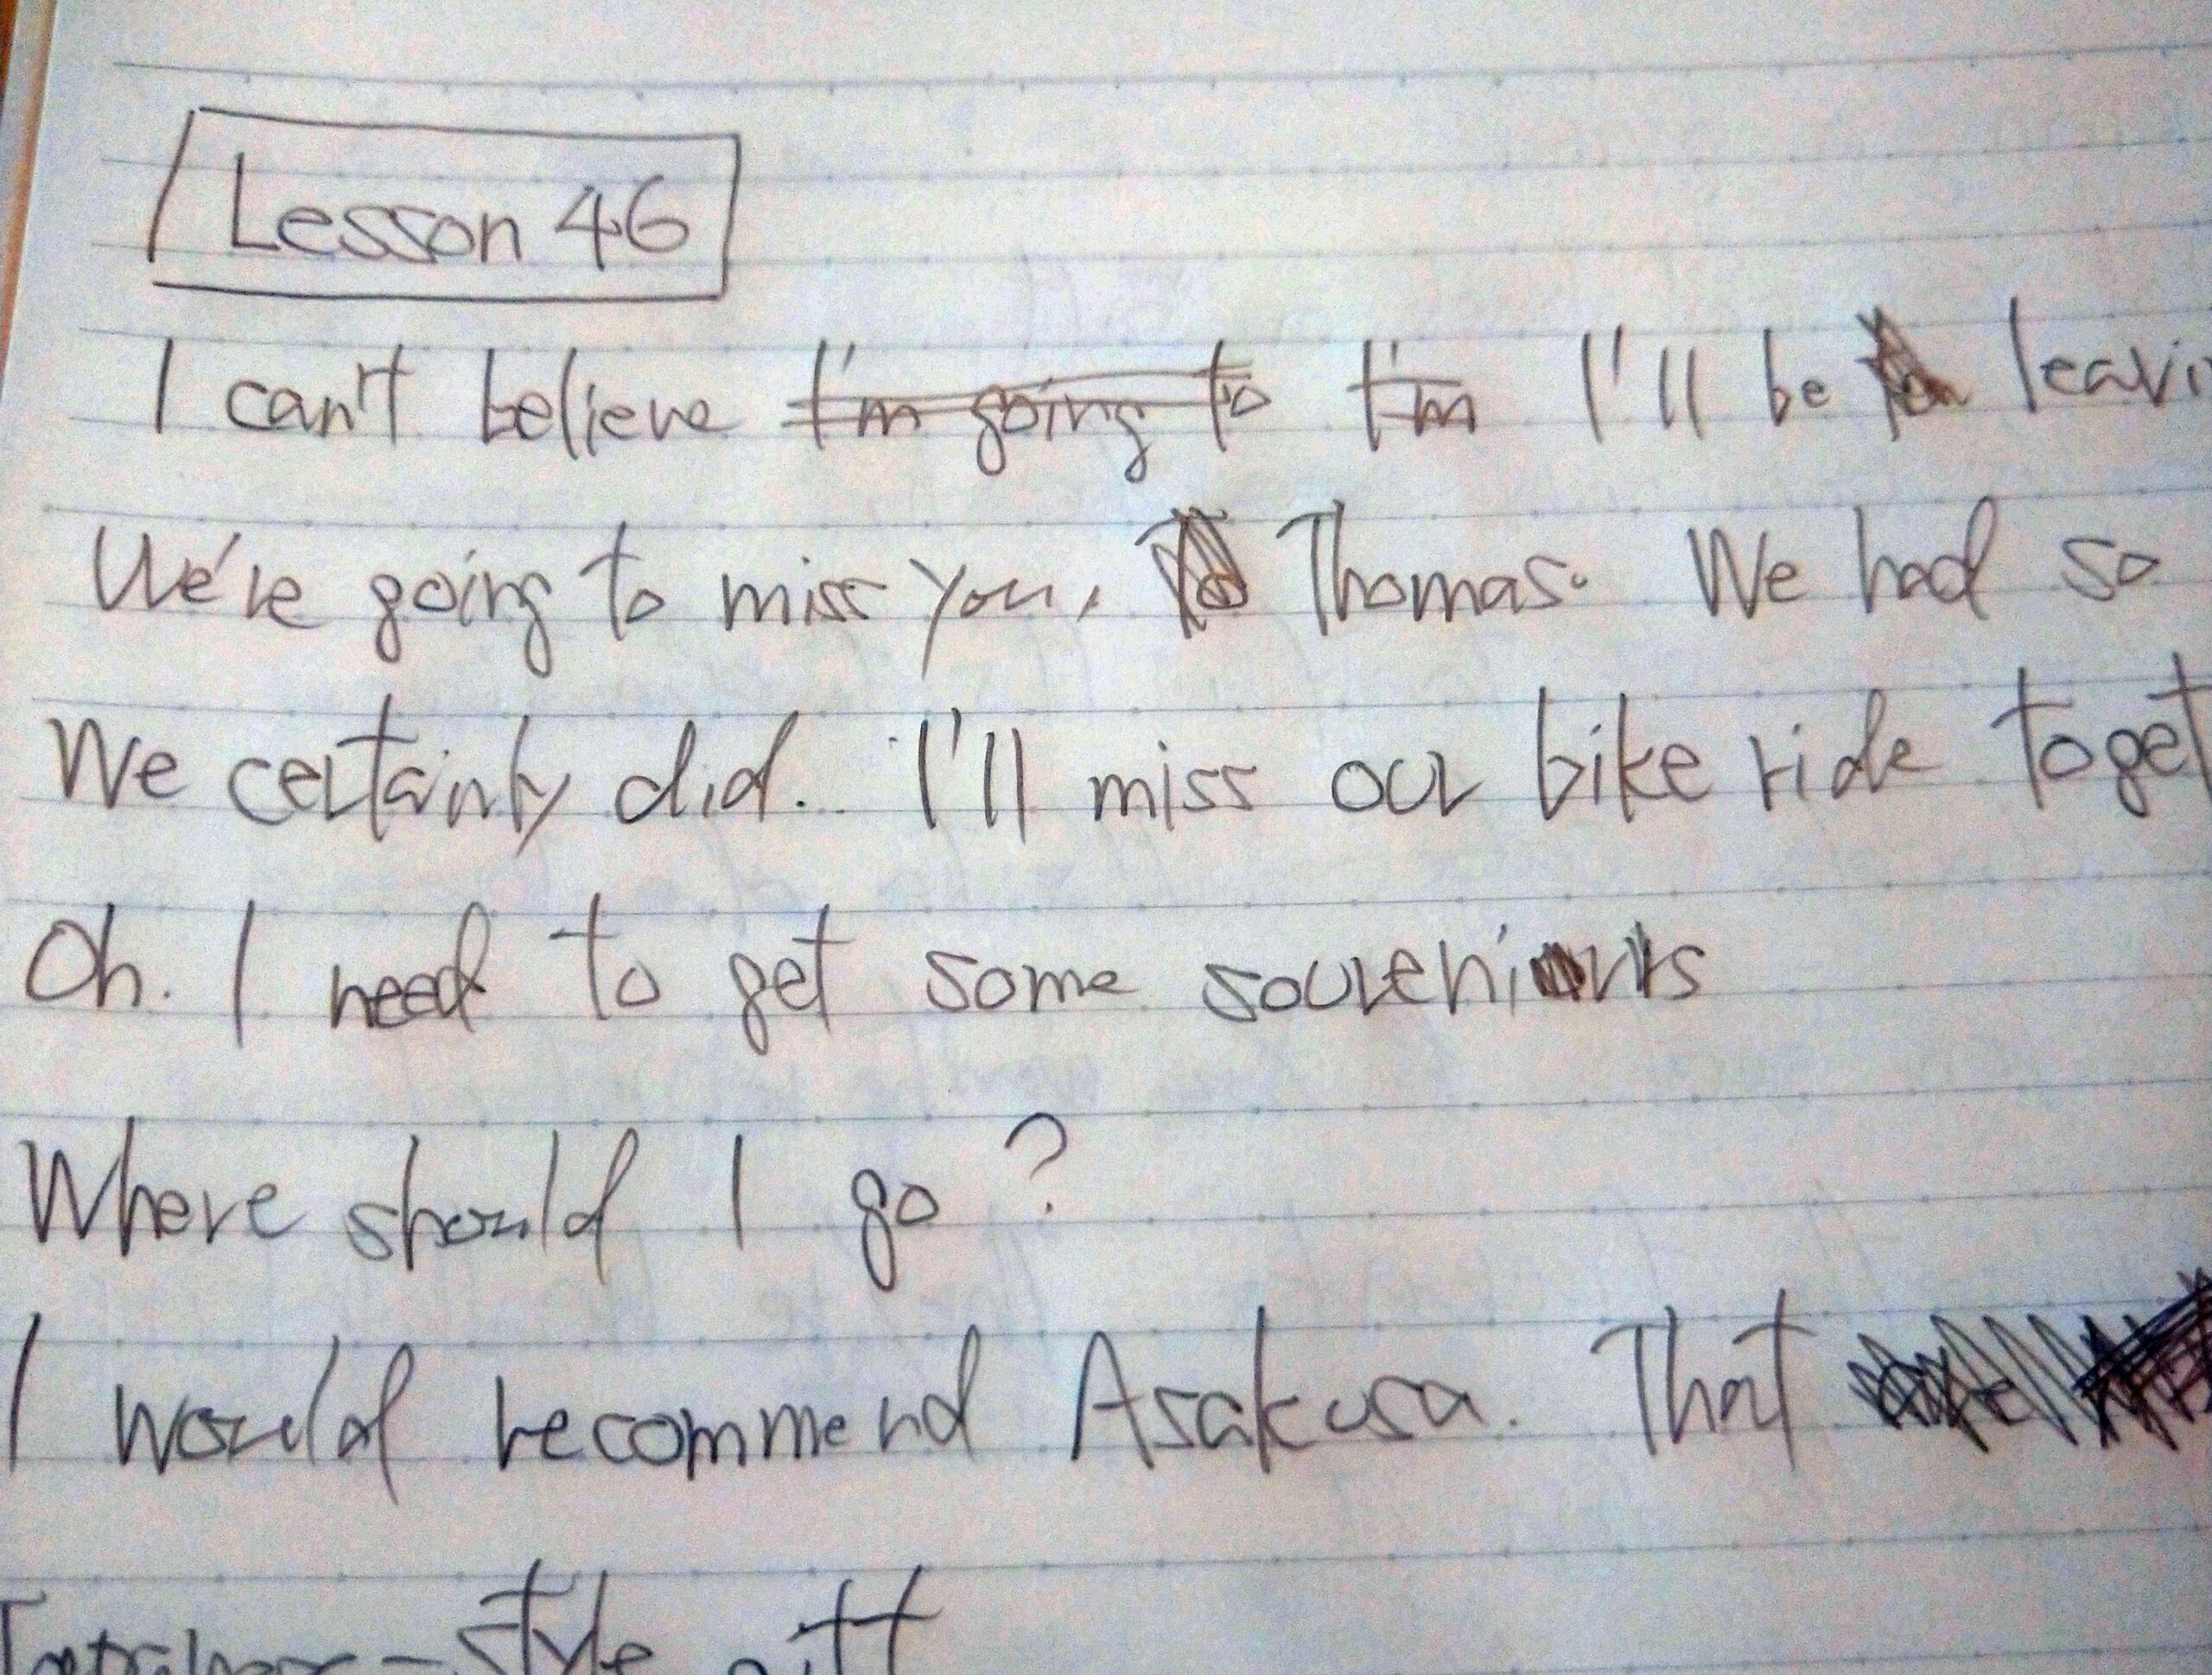 Lesson 46
I can't believe I'm going to I'm I'll be leavi
We're going to miss you, Thomas. We had so
We certainly did. I'll miss our bike ride toget
Oh. I need to get some souvenirs
Where should I go?
I would recommend Asakusa. That
-style gift